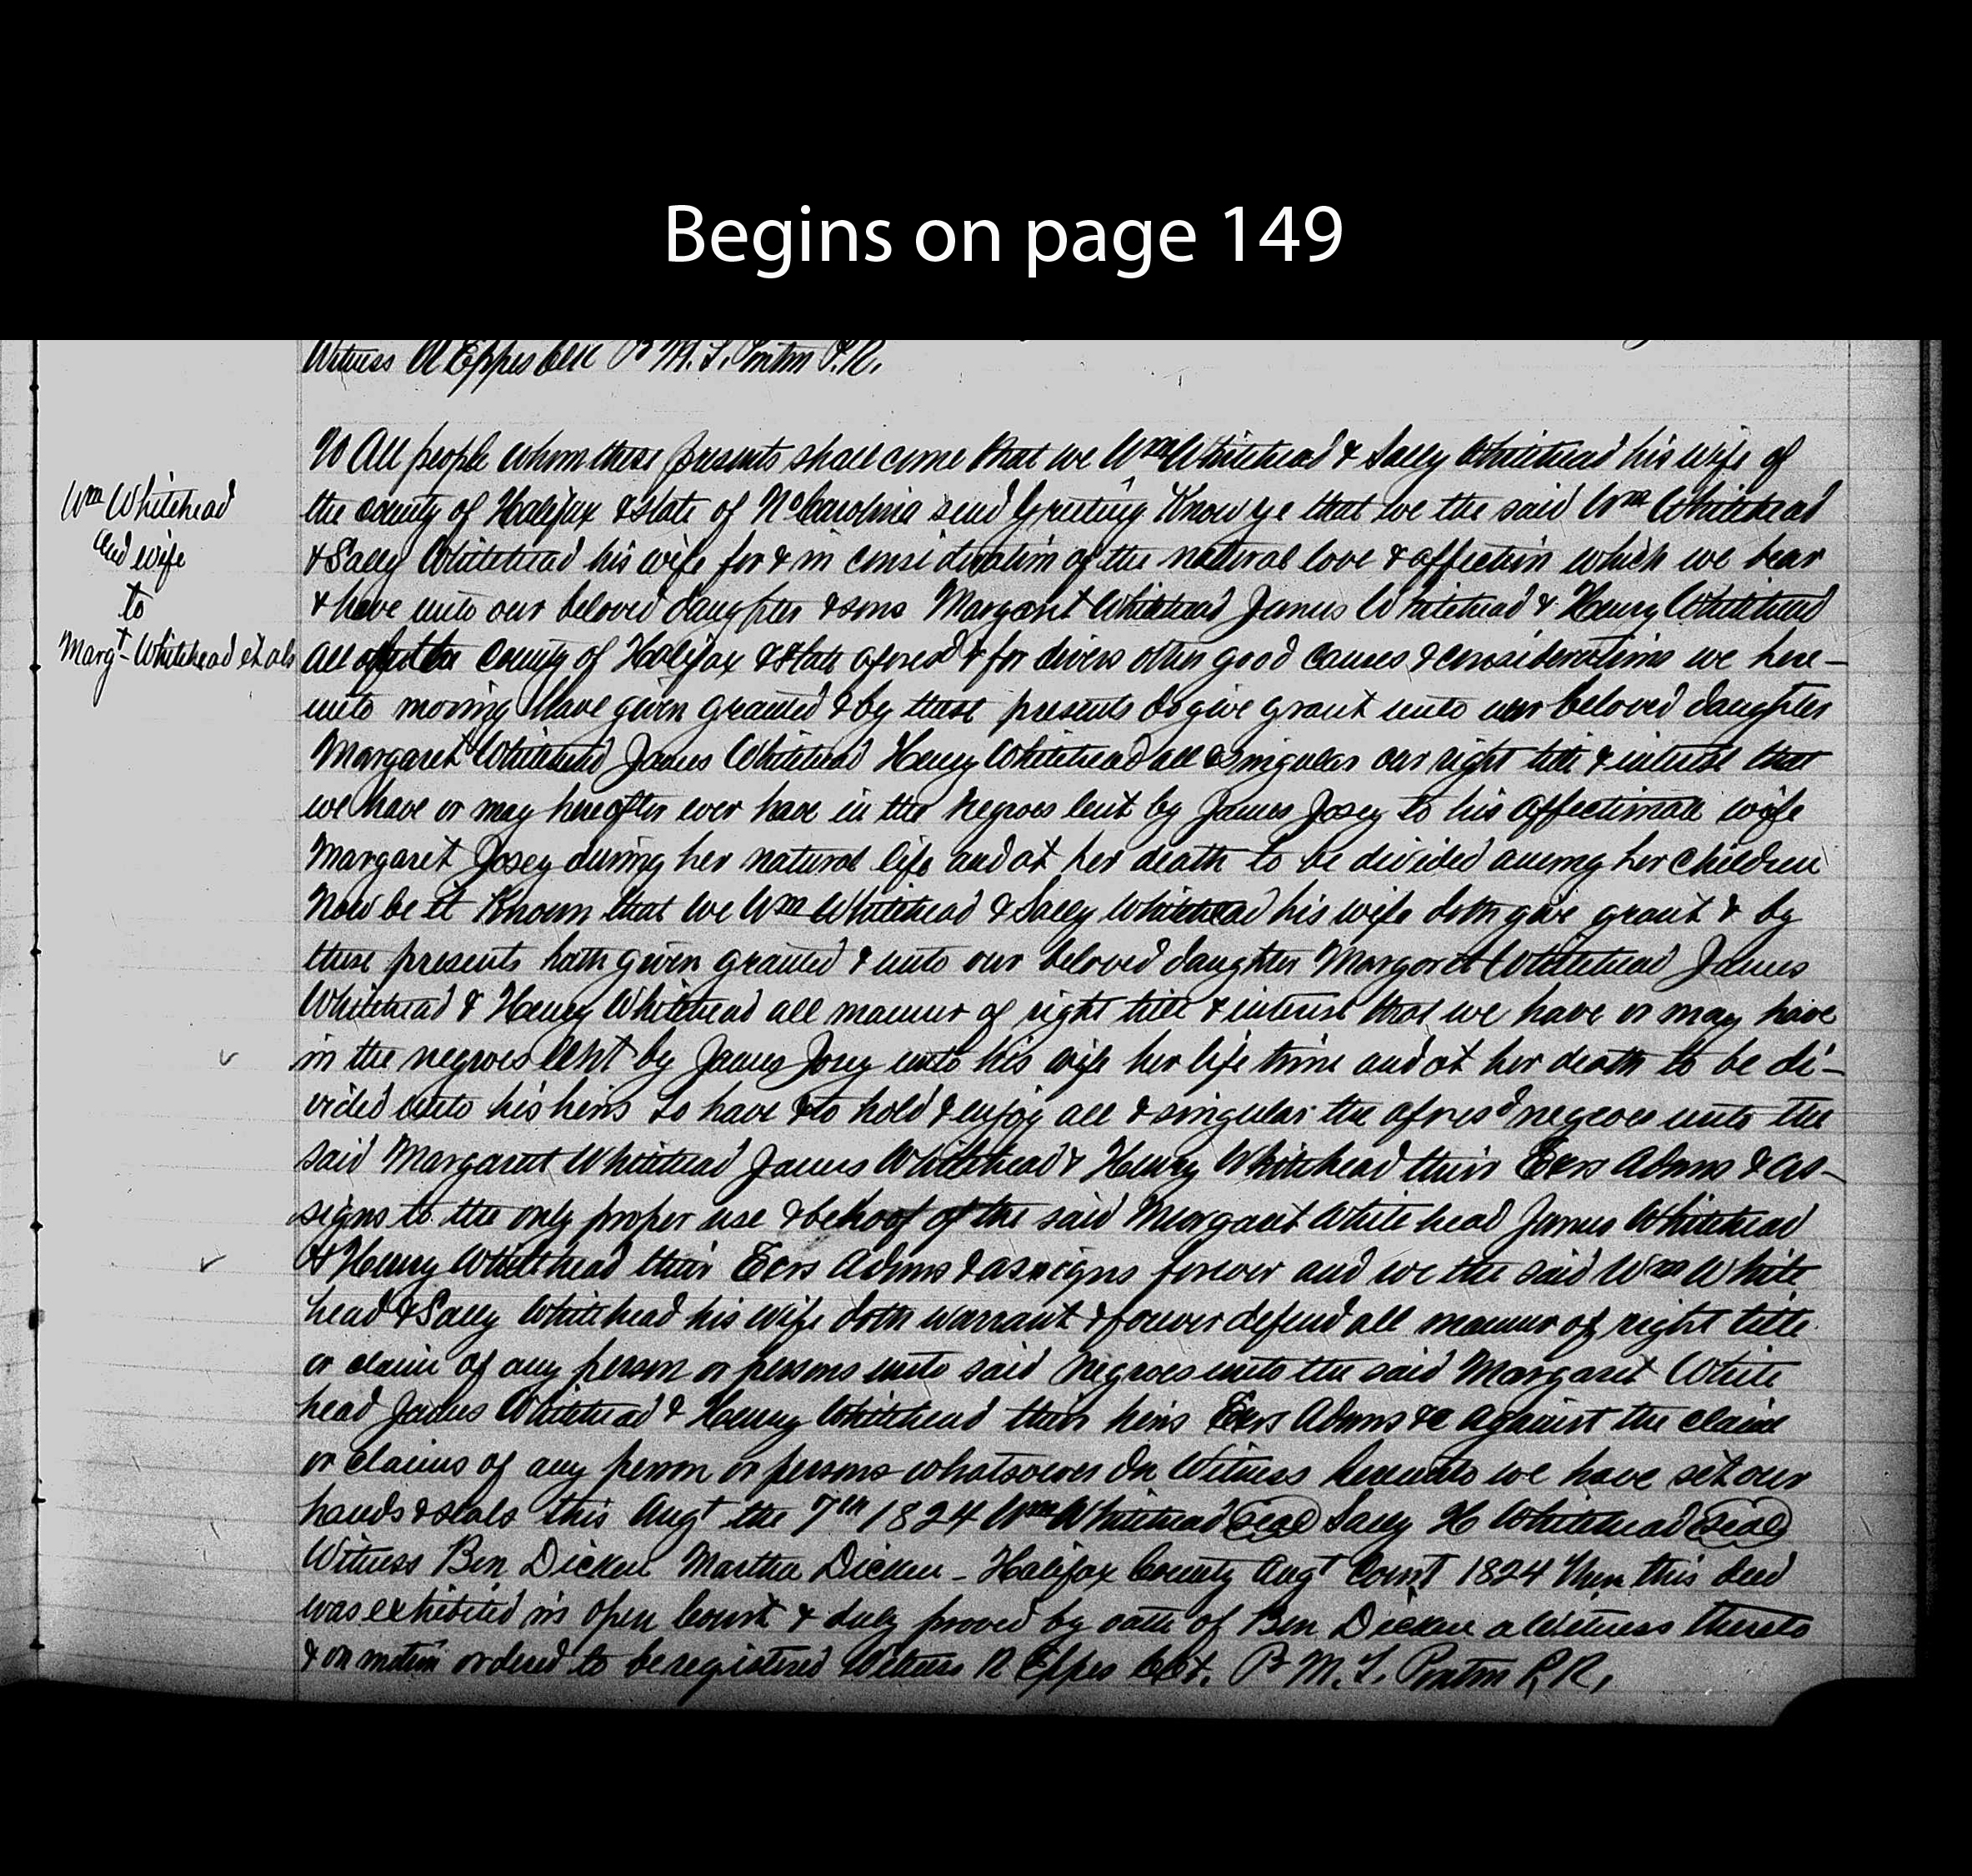 Begins on page 149
Witness R Eppes Clk P M. L. Ponton P.R.
To All people whom these presents shall come that we Wm Whitehead & Sally Whitehead his wife of
the county of Halifax & State of No Carolina send Greeting Know ye that we the said Wm Whitehead
& Sally Whitehead his wife for & in consideration of the natural love & affection which we bear
& have unto our beloved daughter & sons Margaret Whitehead James Whitehead & Henry Whitehead
All of the County of Halifax & State aforesd & for divers other good causes & considerations we here-
unto moving have given granted & by these presents do give grant unto our beloved daughter
Margaret Whitehead James Whitehead Henry Whitehead all & singular our right title & interest that
we have or may hereafter ever have in the Negroes lent by James Josey to his affectionate wife
Margaret Josey during her natural life and at her death to be divided among her children
Now be it Known that we Wm Whitehead & Sally Whitehead his wife doth give grant & by
these presents hath given granted & unto our beloved daughter Margaret Whitehead James
Whitehead & Henry Whitehead all manner of right title & interest that we have or may have
in the negroes lent by James Josey unto his wife her life time and at her death to be di-
vided unto his heirs to have & to hold & enjoy all & singular the aforesd negroes unto the
said Margaret Whitehead James Whitehead & Henry Whitehead their Exrs Adms & as-
signs to the only proper use & behoof of the said Margaret White head James Whitehead
& Henry Whitehead their Exrs Adms & assigns forever and we the said Wm White
head & Sally Whitehead his wife doth warrant & forever defend all manner of right title
or claim of any person or persons unto said Negroes unto the said Margaret White
head James Whitehead & Henry Whitehead their heirs Exrs Adms &c against the claim
or claims of any person or persons whatsoever In Witness hereunto we have set our
hands & seals this Augt the 7th 1824 Wm Whitehead Seal Sally H Whitehead Seal
Witness Ben Dicken Martha Dicken - Halifax County Augt Court 1824 Then this deed
was exhibited in open Court & duly proved by oath of Ben Dicken a Witness thereto
& on motion ordered to be registered Witness R Eppes Clk. P M. L. Ponton P.R.
Wm Whitehead
and wife
to
Margt Whitehead et als